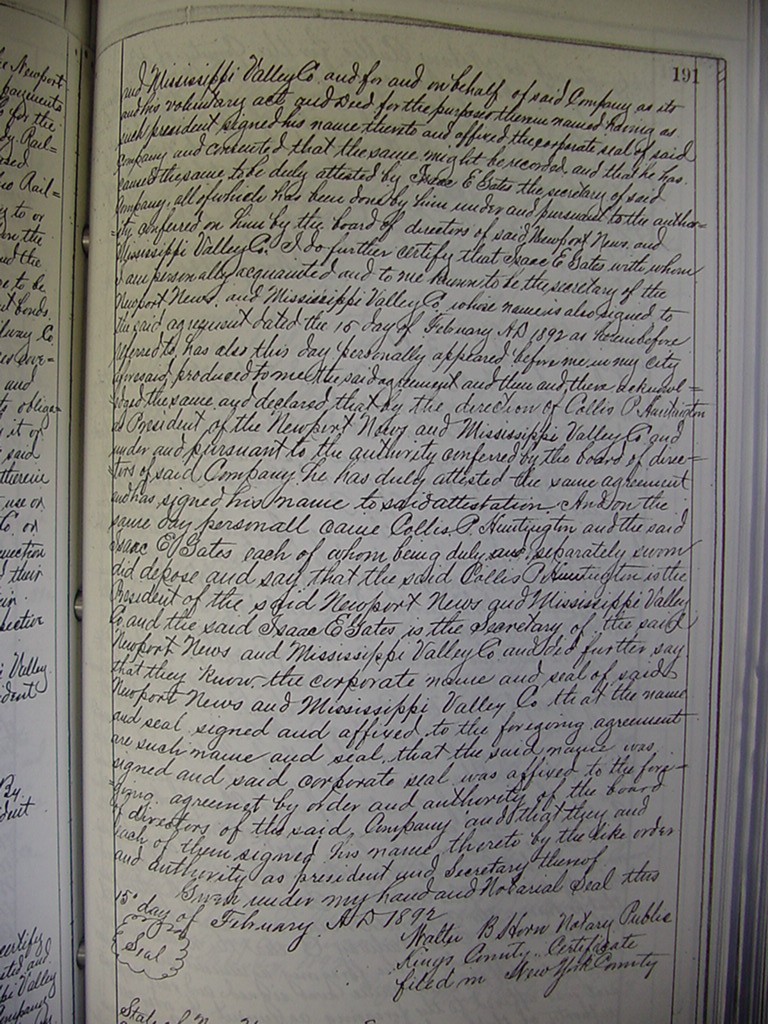 191
and Mississippi Valley Co. and for and on behalf of said Company as its
and his voluntary act and deed for the purposes therein named having as
such president signed his name thereto and affixed the corporate seal of said
Company and consented that the same might be recorded and that he has
caused the same to be duly attested by Isaac E Gates the secretary of said
Company, all of which has been done by him under and pursuant to the author=
ity conferred on him by the board of directors of said Newport News and
Mississippi Valley Co. I do further certify that Isaac E Gates with whom
I am personally acquainted and to me known to be the secretary of the
Newport News. and Mississippi Valley Co whose name is also signed to
the said agreement dated the 15 day of February AD 1892 as hereinbefore
referred to, has also this day personally appeared before me in my city
aforesaid, produced to me the said agreement and then and there acknowl=
edged the same and declared that by the direction of Collis P. Huntington
as President of the Newport News and Mississippi Valley Co and
under and pursuant to the authority conferred by the board of direc=
tors of said Company he has duly attested the same agreement
and has signed his name to said attestation And on the
same day personall came Collis. P. Huntington and the said
Isaac E Gates each of whom being duly and separately sworn
did depose and say that the said Collis P Huntington is the
President of the said Newport News and Mississippi Valley
Co and the said Isaac E Gates is the Secretary of the said
Newport News and Mississippi Valley Co and did further say
that they know the corporate name and seal of said
Newport News and Mississippi Valley Co that the name
and seal signed and affixed to the foregoing agreement
are such name and seal, that the said name was
signed and said corporate seal was affixed to the fore=
going agreement by order and authority of the board
of directors of the said Company and that they and
each of them signed his name thereto by the like order
and authority as president and secretary thereof
Given under my hand and Notarial Seal this
15" day of February AD 1892
Walter B Horn Notary Public
Kings County. Certificate
filed in New York County
Seal